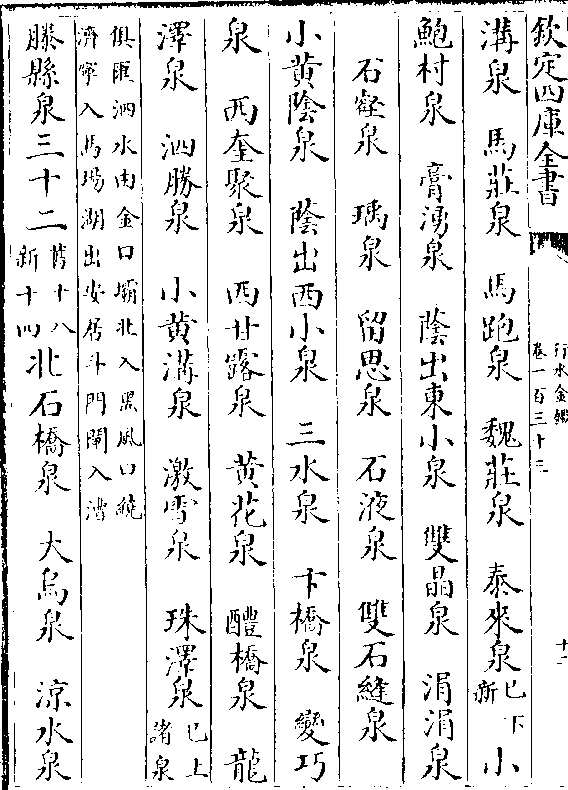 欽定四庫全書
行水金鑑
卷一百三十三
十二
溝泉 馬莊泉 馬跑泉 魏莊泉 泰來泉已下新 小
鮑村泉 膏湧泉 蔭出東小泉 雙晶泉 涓涓泉
石壑泉 瑀泉 留思泉 石液泉 雙石縫泉
小黃陰泉 蔭出西小泉 三水泉 卞橋泉 變巧
泉 西奎聚泉 西甘露泉 黃花泉 醴橋泉 龍
澤泉 泗勝泉 小黃溝泉 激雪泉 珠澤泉已上諸泉
俱匯泗水由金口壩北入黑風口繞
濟寧入馬場湖出安居斗門閘入漕
滕縣泉三十二舊十八新十四 北石橋泉 大烏泉 涼水泉